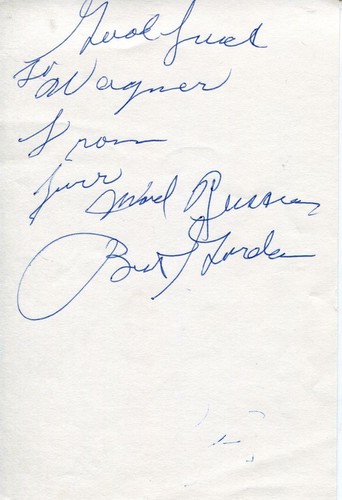 Good Luck
To Wagner
From
Your Mad Russian
Bert Gordon